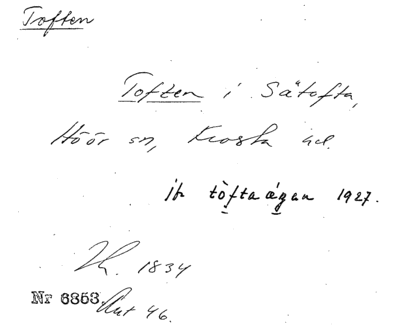 Toften
Toften i Sätofta,
Höör sn, Frosta hd.
jfr tòftaágan 1927.
1834
Nr 6353. Ant 46.